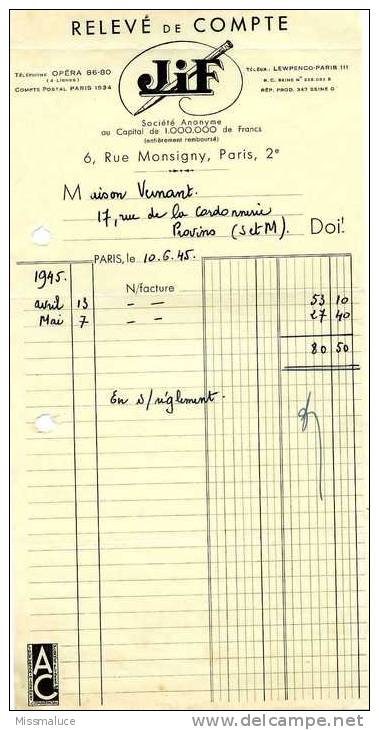 RELEVÉ DE COMPTE
TÉLÉPHONE OPÉRA 86-80
(4 LIGNES)
COMPTE POSTAL PARIS 1934
JiF
TÉLÉGR.: LEWPENCO-PARIS 111
R. C. SEINE Nº
RÉP. PROD. 347 SEINE G
Société Anonyme
au Capital de 1.000.000 de Francs
(entièrement remboursé)
6, Rue Monsigny, Paris, 2e
Maison Vernant.
17, rue de la Cordonnerie
Provins (S et M). Doit
PARIS, le 10.6.45.
1945.
N/facture
avril 13 — — 53 10
Mai 7 — — 27 40
80 50
En s/ règlement.
AC
Missmaluce
www.delcampe.net